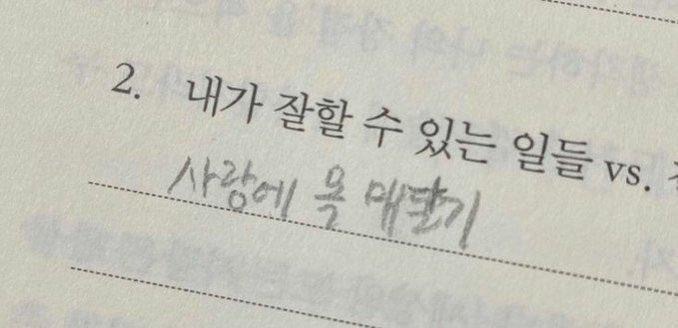 2. 내가 잘할 수 있는 일들 vs.
사랑에 목 매달기